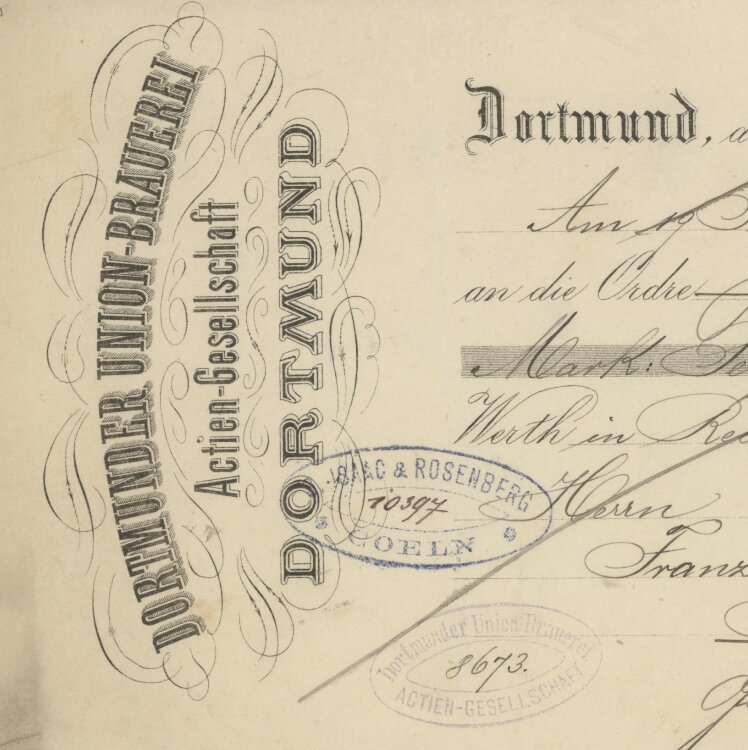 DORTMUNDER UNION-BRAUEREI
Actien-Gesellschaft
DORTMUND
Dortmund,
Am 19
an die Ordre
Mark:
Werth in
Herrn
Franz
ISAAC & ROSENBERG
10397
COELN
Dortmunder Union-Brauerei
8673.
ACTIEN-GESELLSCHAFT